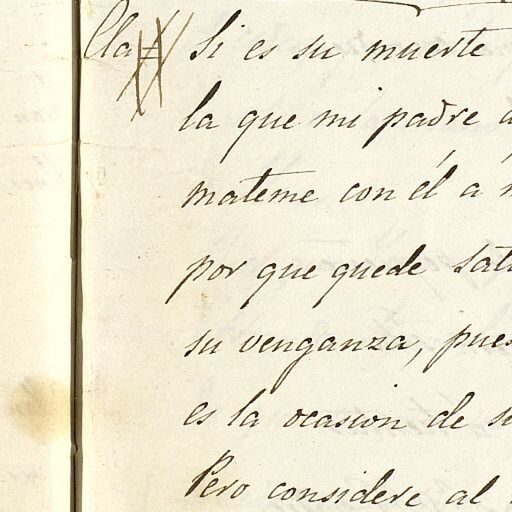 Cla= Si es su muerte
la que mi padre
mateme con él á
por que quede
su venganza, pues
es la ocasion de
Pero considere al